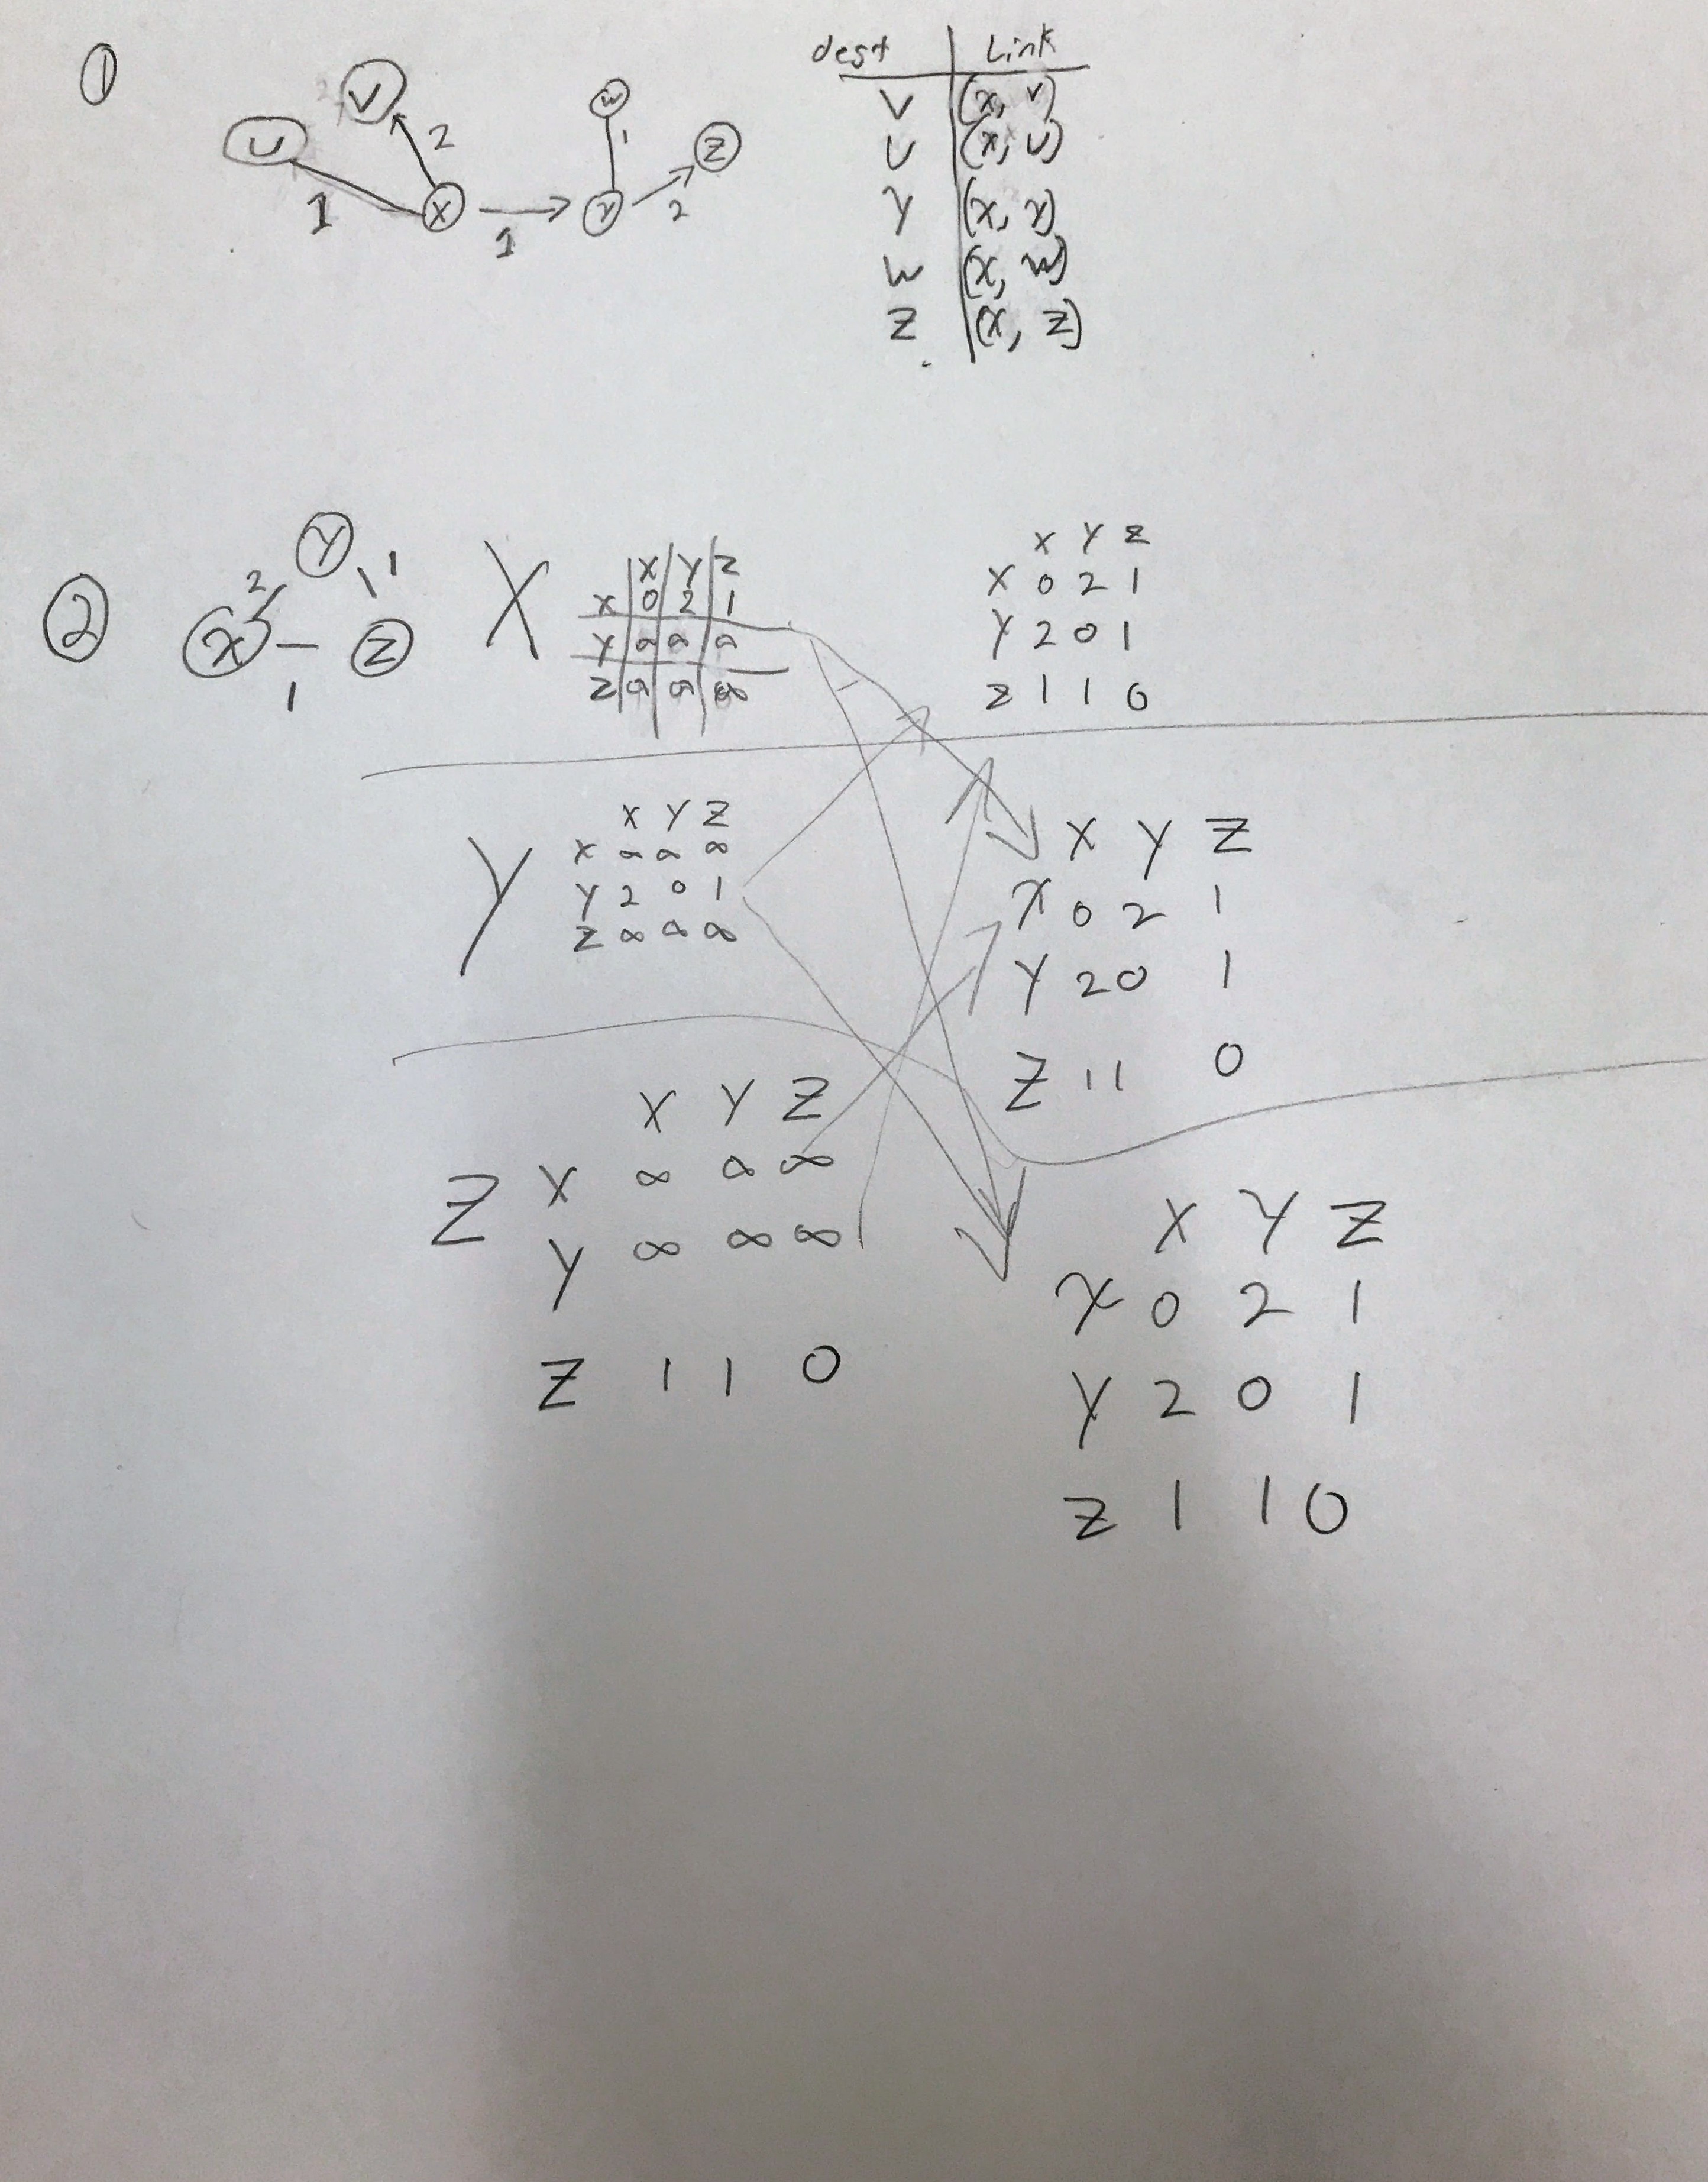 ①
U V X Y W Z
1 2 1 1 2
dest Link
V (x, v)
U (x, u)
Y (x, y)
W (x, w)
Z (x, z)
②
Y
2 1
X Z
1
X
X Y Z
X 0 2 1
Y ∞ ∞ ∞
Z ∞ ∞ ∞
X Y Z
X 0 2 1
Y 2 0 1
Z 1 1 0
Y
X Y Z
X ∞ ∞ ∞
Y 2 0 1
Z ∞ ∞ ∞
X Y Z
X 0 2 1
Y 2 0 1
Z 1 1 0
Z
X Y Z
X ∞ ∞ ∞
Y ∞ ∞ ∞
Z 1 1 0
X Y Z
X 0 2 1
Y 2 0 1
Z 1 1 0